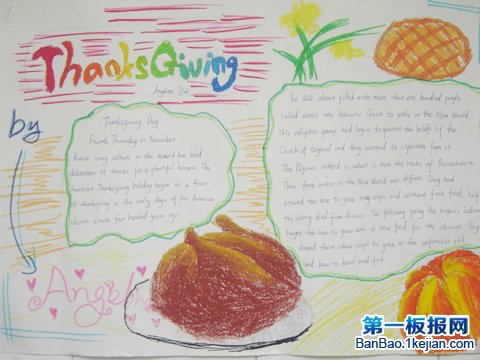 ThanksGiving
Angelina 7/2
by
Angelina
Thanksgiving Day
Fourth Thursday in November
Almost every culture in the world has held
celebrations of thanks for a plentiful harvest. The
American Thanksgiving holiday began as a feast
of thanksgiving in the early days of the American
colonies almost four hundred years ago.
In 1620, a boat filled with more than one hundred people
sailed across the Atlantic Ocean to settle in the New World.
This religious group had begun to question the beliefs of the
Church of England and they wanted to separate from it.
The Pilgrims settled in what is now the state of Massachusetts.
Their first winter in the New World was difficult. They had
arrived too late to grow many crops, and without fresh food, half
the colony died from disease. The following spring the Iroquois Indians
taught them how to grow corn, a new food for the colonists. They
showed them other crops to grow in the unfamiliar soil
and how to hunt and fish.
第一板报网
BanBao.1kejian.com